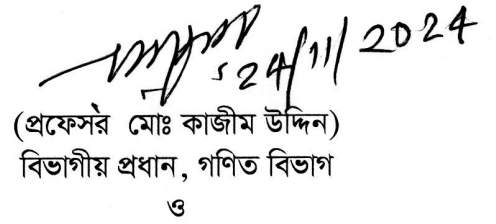 24/11/2024
(প্রফেসর মোঃ কাজীম উদ্দিন)
বিভাগীয় প্রধান, গণিত বিভাগ
ও